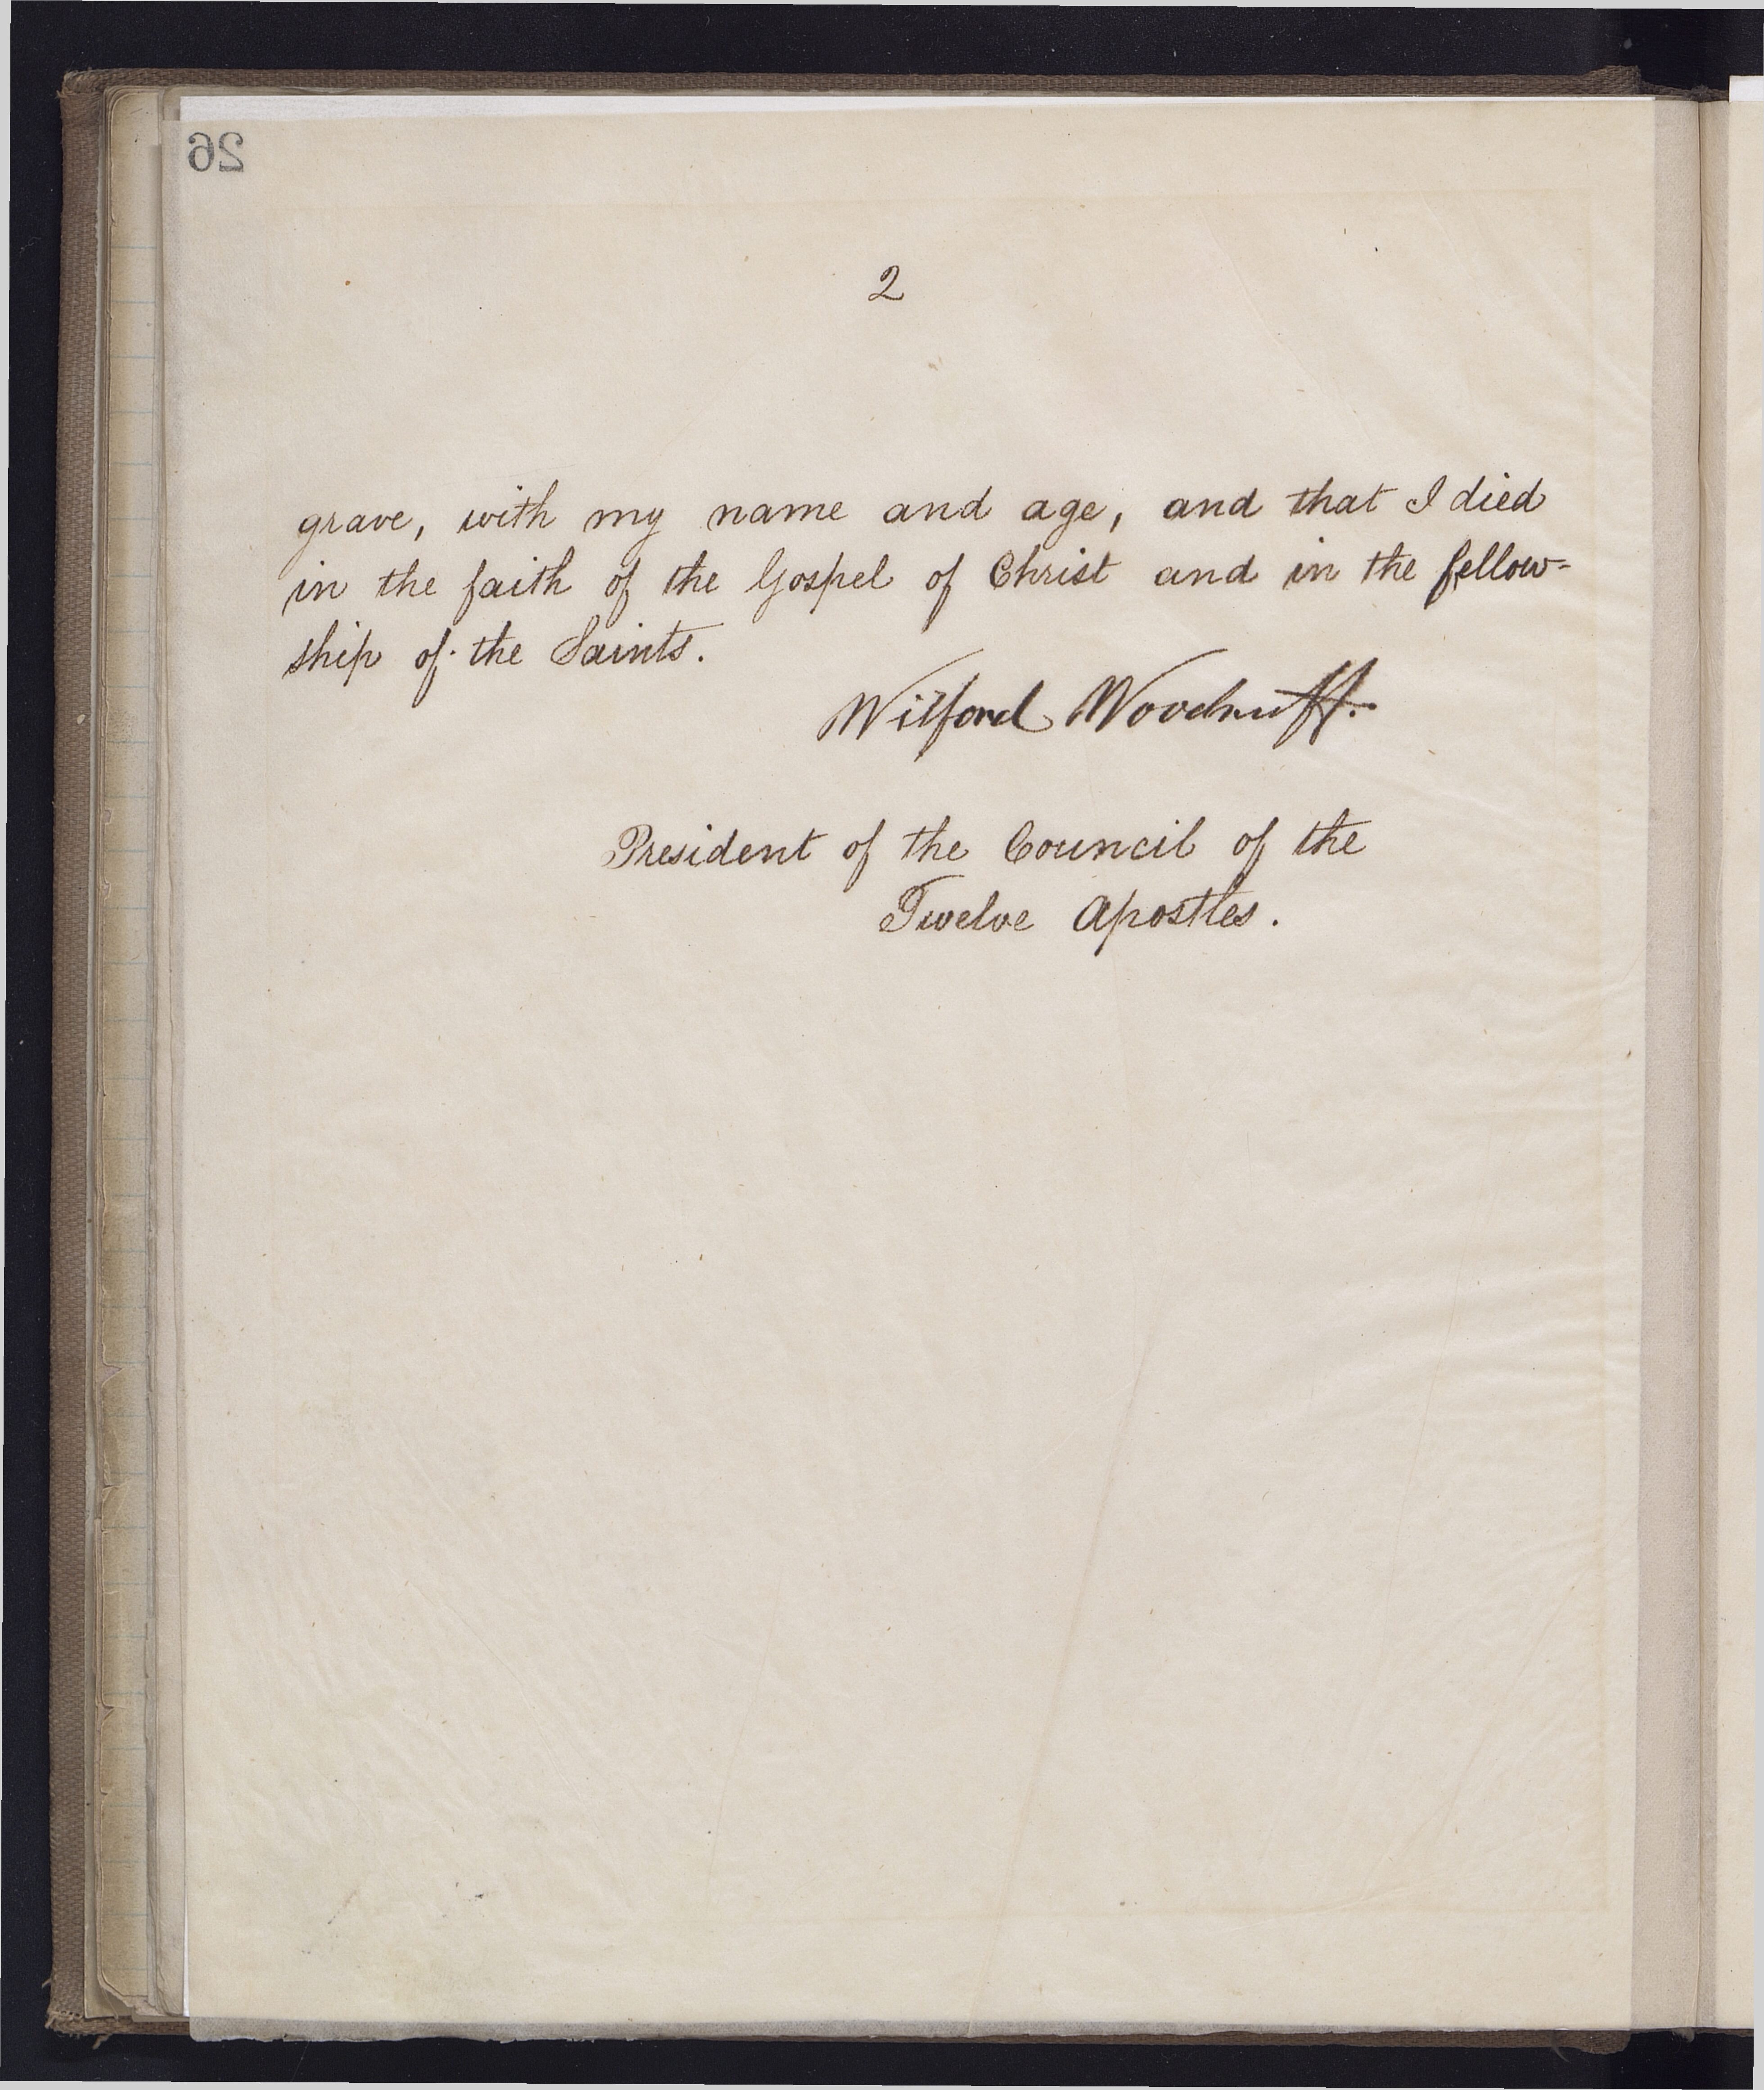 26
2
grave, with my name and age, and that I died
in the faith of the Gospel of Christ and in the fellow=
ship of the Saints.
Wilford Woodruff.
President of the Council of the
Twelve Apostles.